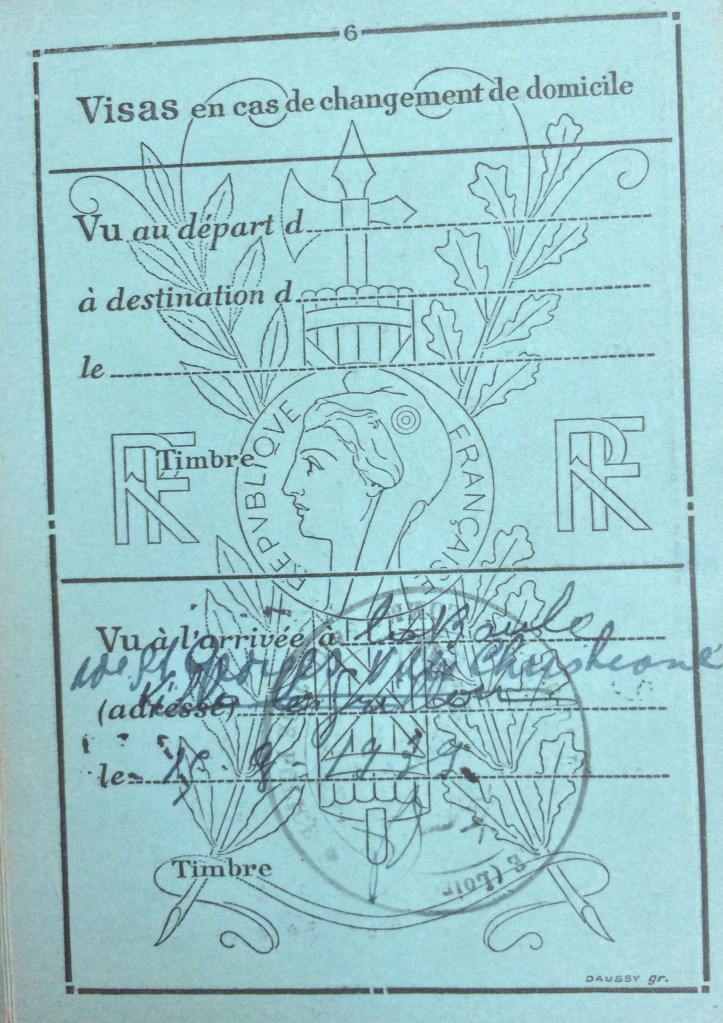 6
Visas en cas de changement de domicile
Vu au départ d
à destination d
le
RF Timbre
REPVBLIQVE FRANÇAISE
RF
Vu à l'arrivée à La Baule
Villa Christiane
(adresse)
le 15 - 9 - 1939
Timbre
(Loir
DAUSSY gr.